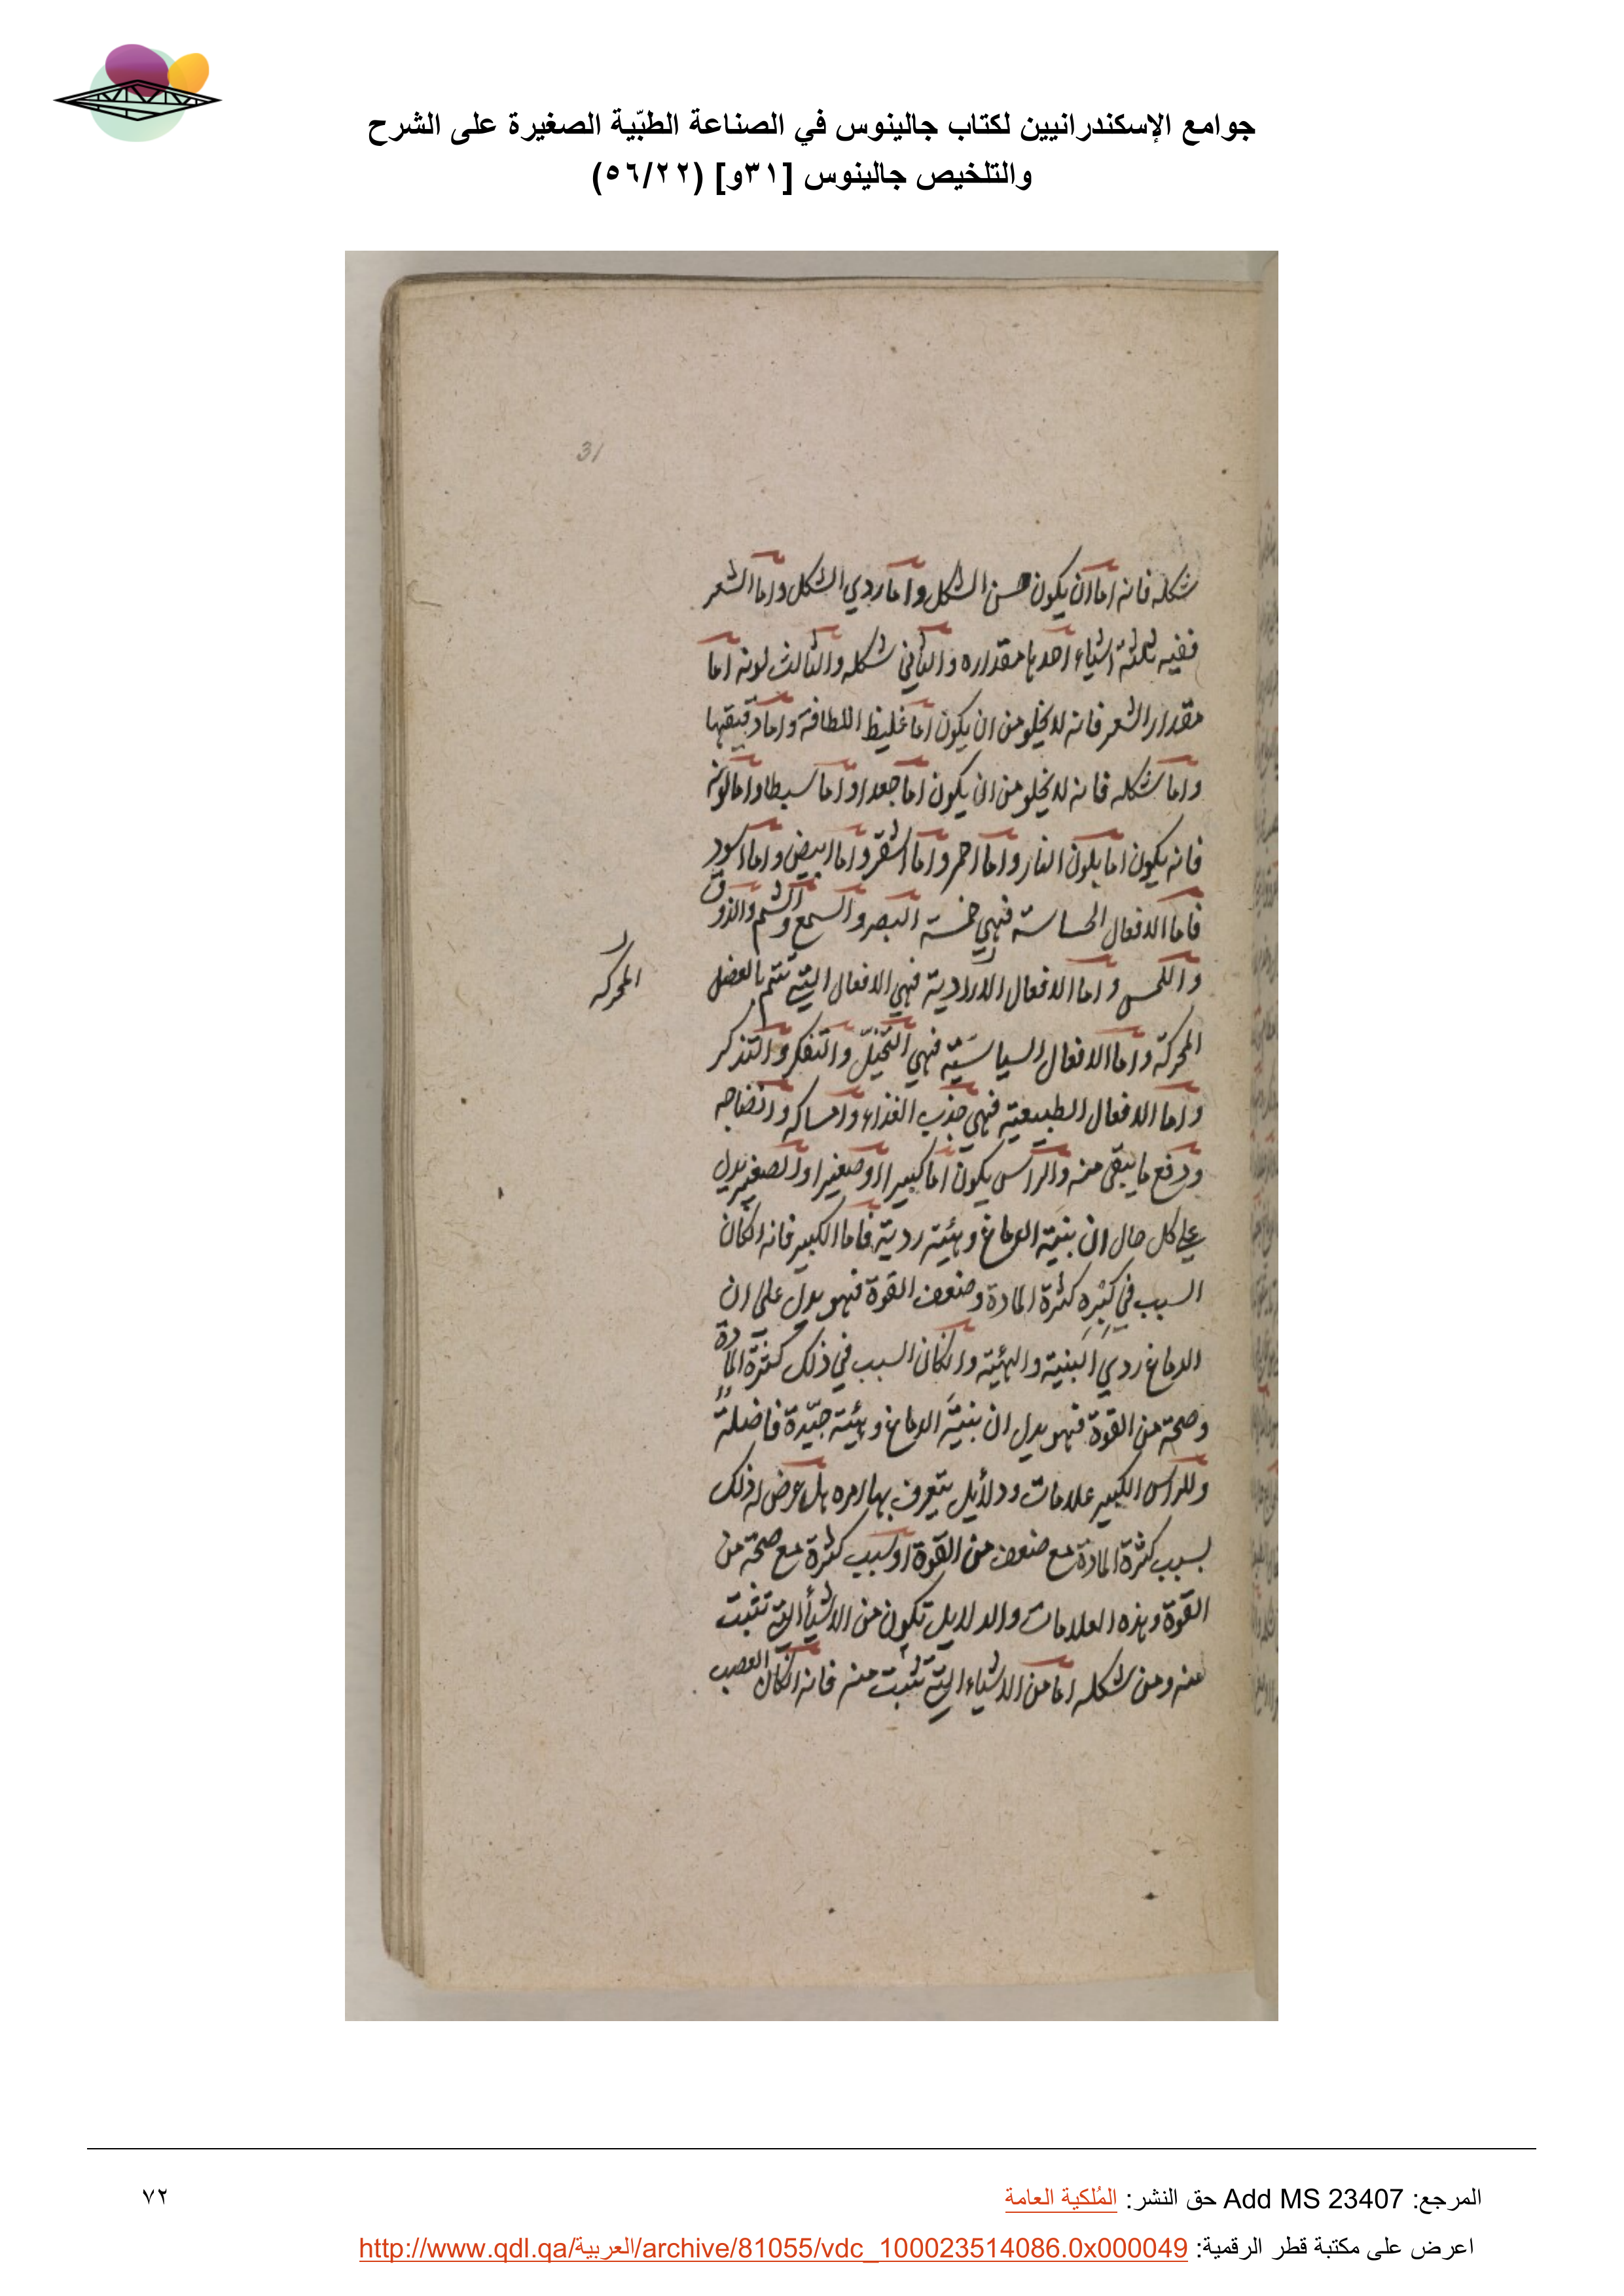 جوامع الإسكندرانيين لكتاب جالينوس في الصناعة الطبّية الصغيرة على الشرح
والتلخيص جالينوس [٣١و] (٥٦/٢٢)
31
شكله فانه اما ان يكون حسن الشكل واما ردي الشكل واما الشعر
ففيه ثلثة اشياء احدها مقداره والثاني شكله والثالث لونه اما
مقدار الشعر فانه لا يخلو من ان يكون اما غليظ اللطافة واما دقيقها
واما شكله فانه لا يخلو من ان يكون اما جعدا واما سبطا واما لونه
فانه يكون اما بلون النار واما احمر واما اشقر واما ابيض واما اسود
فاما الافعال الحساسة فهي خمسة البصر والسمع والشم والذوق
واللمس واما الافعال الارادية فهي الافعال التي تتم بالعضل
المحركه
المحركة واما الافعال السياسيّة فهي التخيّل والتفكر والتذكر
واما الافعال الطبيعية فهي جذب الغذاء وامساكه وانضاجه
ودفع ما يبقى منه والراس يكون اما كبيرا او صغيرا والصغير يدل
على كل حال ان بنية الدماغ وهيئته ردية فاما الكبير فانه انكان
السبب في كبره كثرة المادة وضعف القوة فهو يدل على ان
الدماغ ردي البنية والهيئة وانكان السبب في ذلك كثرة المادة
وصحة من القوة فهو يدل ان بنية الدماغ وهيئته جيّدة فاضلة
وللراس الكبير علامات ودلايل يتعرف بها امره هل عرض له ذلك
بسبب كثرة المادة مع ضعف من القوة او بسبب كثرة مع صحة من
القوة وهذه العلامات والدلايل تكون من الاشيأ التي تنبت
منه ومن شكله اما من الاشياء التي تنبت منه فانه انكان العصب
المرجع: Add MS 23407 حق النشر: المُلكية العامة
٧٢
اعرض على مكتبة قطر الرقمية: http://www.qdl.qa/العربية/archive/81055/vdc_100023514086.0x000049